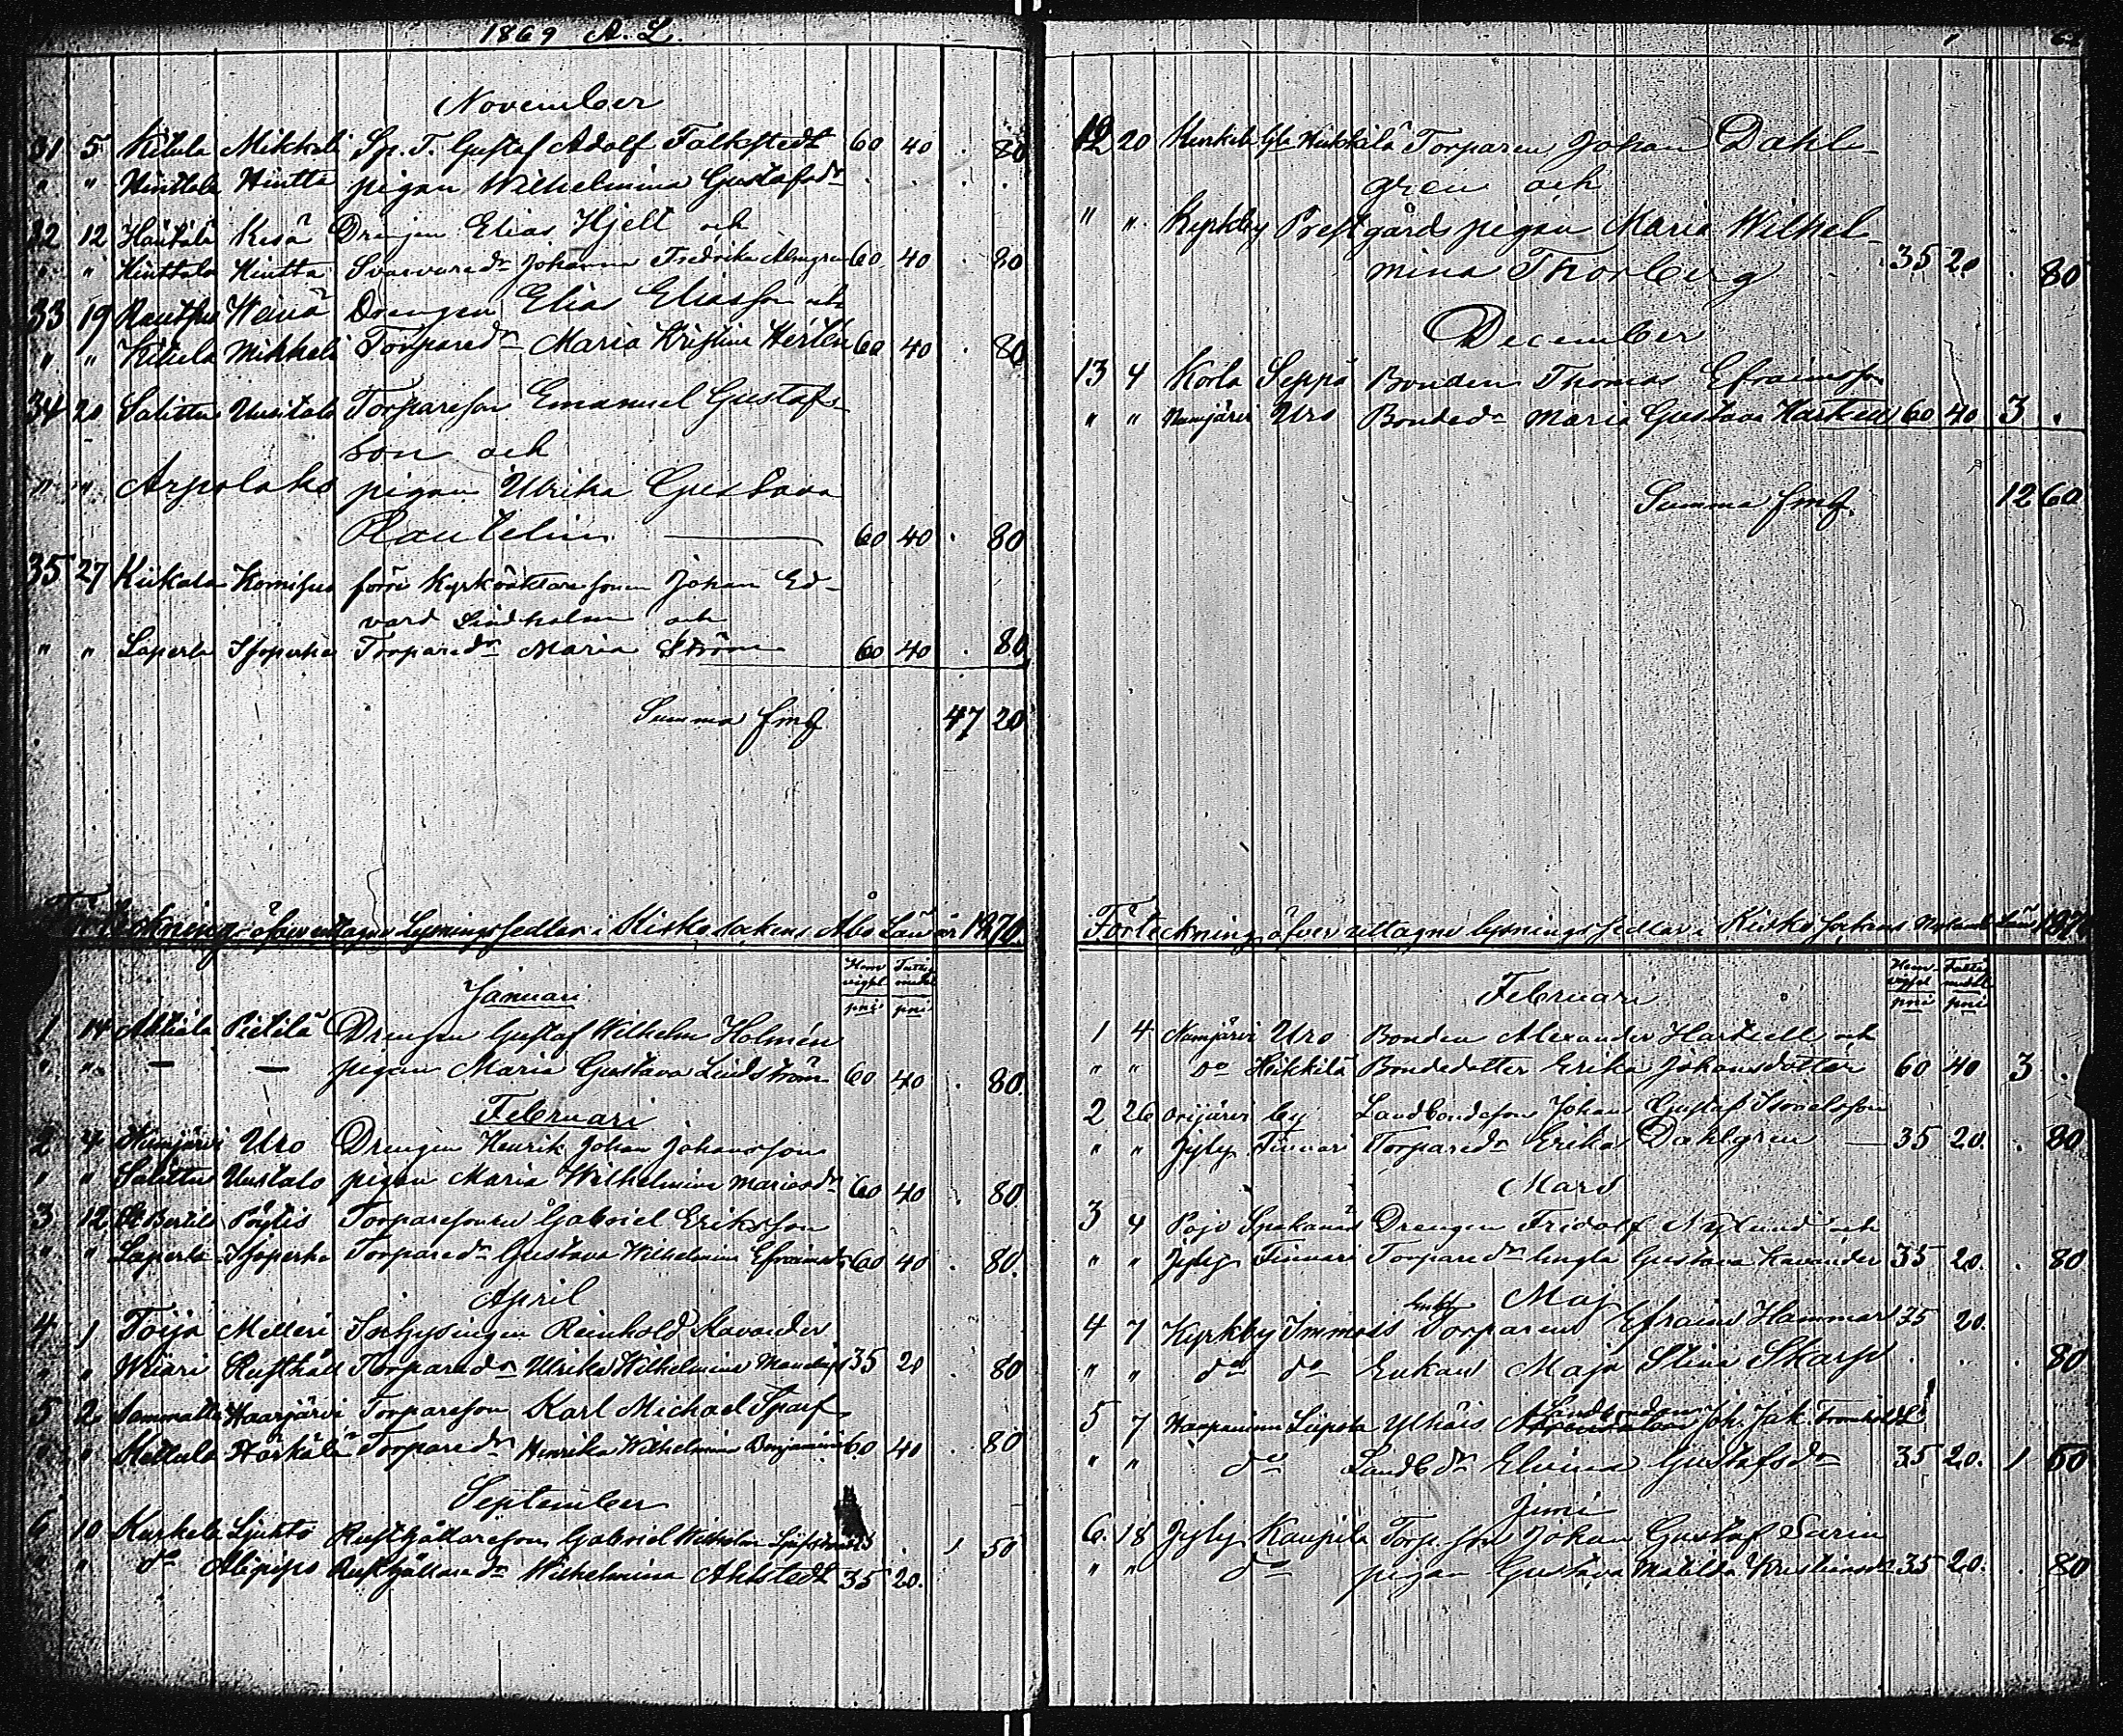 1869 A. L.
November
31 5 Kitula Mikkeli Sp. T. Gustaf Adolf Falkstedt 60 40 . 80
" " Hinttala Hintta pigan Wilhelmina Gustafsdr . . . .
32 12 Kesä Drengen Elias Hjelt och
" " Hinttala Hintta Svarvaredr Johanna Fredrika Almgren 60 40 . 80
33 19 Drengen Elias Eliasson och
" " Kitula Mikkeli Torparedr Maria Kristina 60 40 . 80
34 20 Salittu Uusitalo Torpareson Emanuel Gustafs-
son och
" " Arpalahti pigan Ulrika Gustava
Rautelin 60 40 . 80
35 27 Kiikala Komisuo förre Kyrkovaktaresonen Johan Ed-
vard Lindholm och
" " Laperla Isoperhe Torparedr Maria Ström 60 40 . 80
Summa fmk 47 20
Förteckning öfver uttagne Lysningssedlar i Kisko sockens Åbo Län år 1870.
Januari
1 14 Pietilä Drengen Gustaf Wilhelm Holmén
" " — — pigan Maria Gustava Lindström 60 40 . 80.
Februari
2 4 Uro Drengen Henrik Johan Johansson
" " Salittu Uusitalo pigan Maria Wilhelmina Mariasdr 60 40 . 80
3 12 Pöytis Torparesonen Gabriel Eriksson
" " Laperla Isoperhe Torparedr Gustava Wilhelmina Efraimsdr 60 40 . 80.
April
4 1 Toija Melleri Inhysingen Reinhold Kavander
" " Rusthåll Torparedr Ulrika Wilhelmina 35 20 . 80
5 2 Sammatti Haarjärvi Torpareson Karl Michael Sparf
" " Mettula Härkälä Torparedr Henrika Wilhelmina 60 40 . 80
September
6 10 Kurkela Rusthållareson Gabriel Wilhelm . 1 50
" " do Alipiso Rusthållaredr Wilhelmina Ahlstedt 35 20.
12 20 Kurkela Heikkilä Torparen Johan Dahl-
gren och
" " Kyrkby Prestgårds pigan Maria Wilhel-
mina Thorberg 35 20 . 80
December
13 4 Korla Seppä Bonden Thomas Efraimsson
" " Uro Bondedr Maria Gustava 60 40 3 .
Summa fmk. 12 60
Förteckning öfver uttagne lysningssedlar i Kisko sockens Nylands Län 1870
Februari
1 4 Uro Bonden Alexander Hartzell och
" " do Heikkilä Bondedotter Erika Johansdotter 60 40 3 .
2 26 Orijärvi by Landbondeson Johan Gustaf
" " Jyly Finnari Torparedr Erika Dahlgren 35 20. . 80
Mars
3 4 Pojo Drengen Fridolf Nylund och
" " Jyly Finnari Torparedr Gustava Kavander 35 20. . 80
Maj
4 7 Kyrkby Immois Torparen Efraim Hammar 35 20.
" " do do Enkan Maja Stina Skarp . . . 80
5 7 Haapaniemi Liipola Ylhäis Landbonden Joh. Jak.
" " do Landbdr Elvina Gustafsdr 35 20. 1 50
Juni
6. 18 Jyly Kaupila Torp. son Johan Gustaf Sarin
" " do pigan Gustava Matilda 35 20. . 80